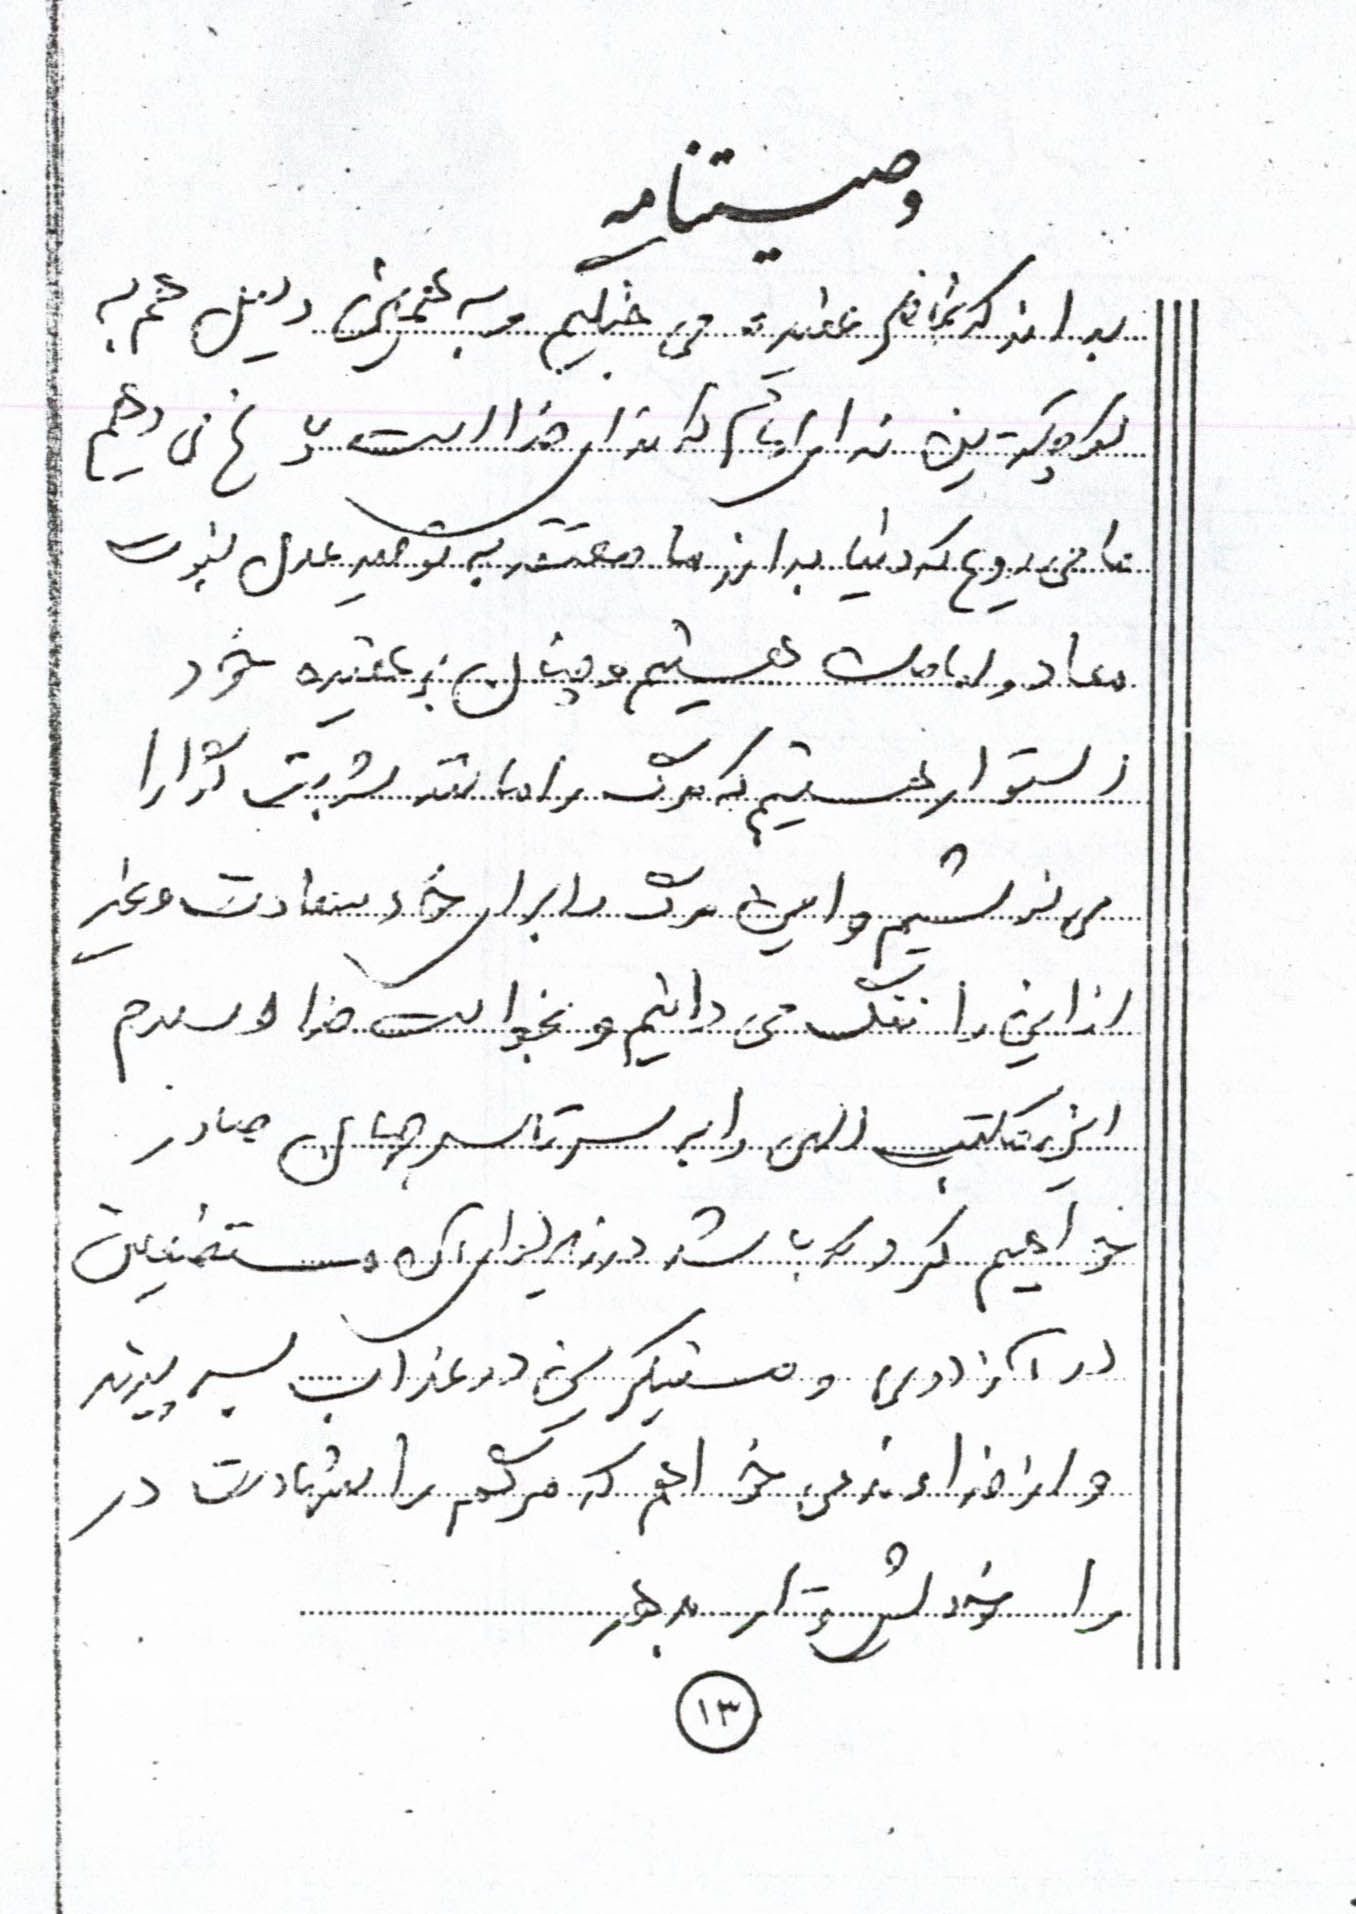 وصیتنامه
بداند که بخاطر عقیده می جنگیم و به همین دلیل هم به
کوچکترین ندای امام که ندای خدا است پاسخ می دهیم
ما می رویم که دنیا بداند ما معتقد به توحید عدل نبوت
معاد و امامت هستیم و چنان بر عقیده خود
استوار هستیم که مرگ را مانند شربت گوارا
می نوشیم و این مرگ را برای خود سعادت و غیر
از این را ننگ می دانیم و بخواست خدا اسلام
این مکتب الهی را بر سرتاسر جهان صادر
خواهیم کرد که باشد در زیر لوای آن مستضعفین
در آزادی و مستکبرین در عذاب بسر ببرند
و از خداوند می خواهم که مرگم را شهادت در
راه خودش قرار بدهد
۱۳